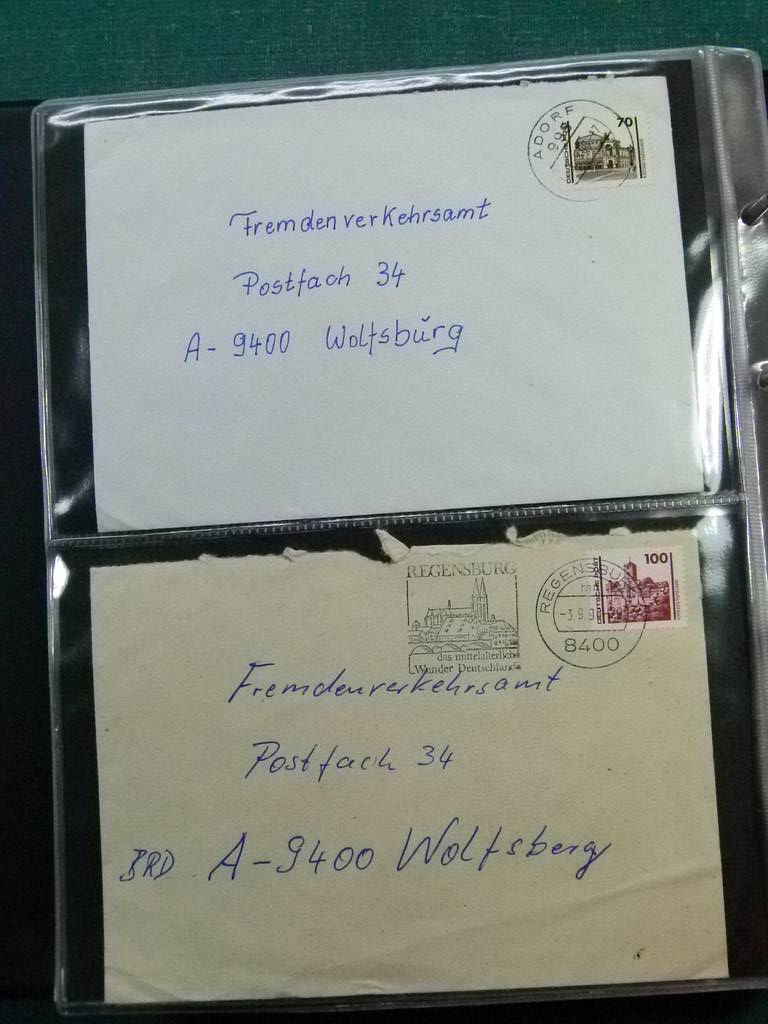 ADORF
70
DEUTSCHE POST
Fremdenverkehrsamt
Postfach 34
A-9400 Wolfsbŭrg
REGENSBURG
das mittelalterliche
Wunder Deutschlands
REGENSBURG
-3.9.9
8400
100
DEUTSCHE POST
Fremdenverkehrsamt
Postfach 34
BRD A-9400 Wolfsberg